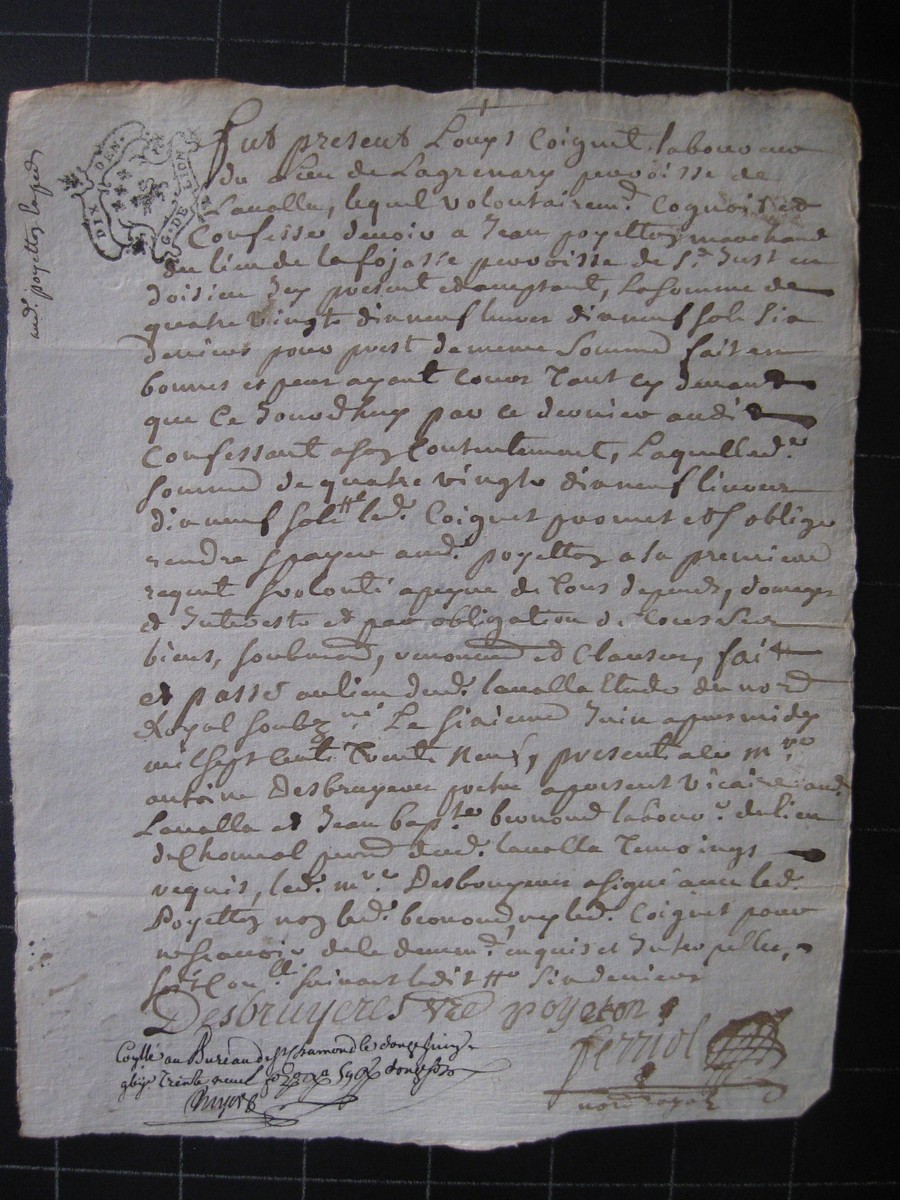 DIX DEN.
G. DE LION
aud. poyetton
Fut present Louys Coignet laboureur
du lieu de Lagrenary parroisse de
Lavalla, lequel volontairem.t Cognoit et
Confesse devoir a Jean poyetton marchand
du lieu de la fojasse parroisse de S.t Just en
doisieu icy present et acceptant, La somme de
quatre vingts dixneuf livres dixneuf sols six
deniers pour prest de meme somme fait en
bonnes et ayant cours tant cy devant
que ce Jourdhuy par ce dernier audit
Confessant a son Contentement, Laquelle d.e
somme de quatre vingts dixneuf livres
dixneuf sols led. Coignet promet et s oblige
rendre & payer aud. poyetton a la premiere
requete & volonté a peyne de tous depends, domages
et Interests et par obligation de tous ses
biens, soubmend, renoncend et Clauses, fait
et passé au lieu dud. lavalla Etude du no.re
Royal soubz.né Le sixieme Juin apres midy
mil sept cents trente neuf, presents a ce m.re
antoine Desbruyeres pretre a present vicaire aud.
Lavalla et Jean bap.te beronond labour.r du lieu
de Chomeal parr.se dud. lavalla Temoings
requis, led. m.re Desbruyeres a signé avec led.
Poyetton non led. beronond ny led. Coignet pour
ne scavoir de ce deuem.t enquis et Interpellés,
suivant ledit six deniers
Desbruyeres vic.e poyeton
ferriol
no.re royal
Coyllé au Bureau de S.t Chamond le douze juin
trente neuf